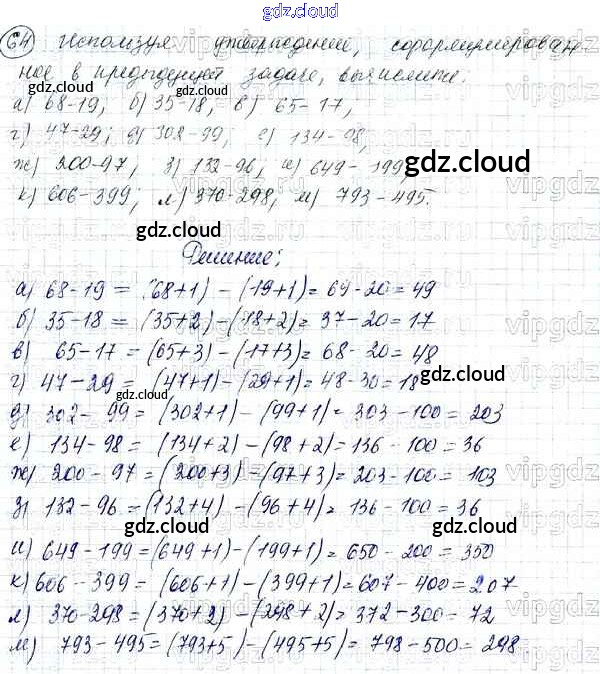 gdz.cloud
64 Используя утверждение, сформулирован-
ное в предыдущей задаче, вычислите:
а) 68-19, б) 35-18, в) 65-17,
г) 47-29; д) 302-99, е) 134-98,
ж) 200-97, з) 132-96, и) 649-199,
к) 606-399, л) 370-298, м) 793-495.
Решение:
а) 68-19 = (68+1) - (19+1) = 69-20 = 49
б) 35-18 = (35+2) - (18+2) = 37-20 = 17
в) 65-17 = (65+3) - (17+3) = 68-20 = 48
г) 47-29 = (47+1) - (29+1) = 48-30 = 18
д) 302-99 = (302+1) - (99+1) = 303-100 = 203
е) 134-98 = (134+2) - (98+2) = 136-100 = 36
ж) 200-97 = (200+3) - (97+3) = 203-100 = 103
з) 132-96 = (132+4) - (96+4) = 136-100 = 36
и) 649-199 = (649+1) - (199+1) = 650-200 = 350
к) 606-399 = (606+1) - (399+1) = 607-400 = 207
л) 370-298 = (370+2) - (298+2) = 372-300 = 72
м) 793-495 = (793+5) - (495+5) = 798-500 = 298.